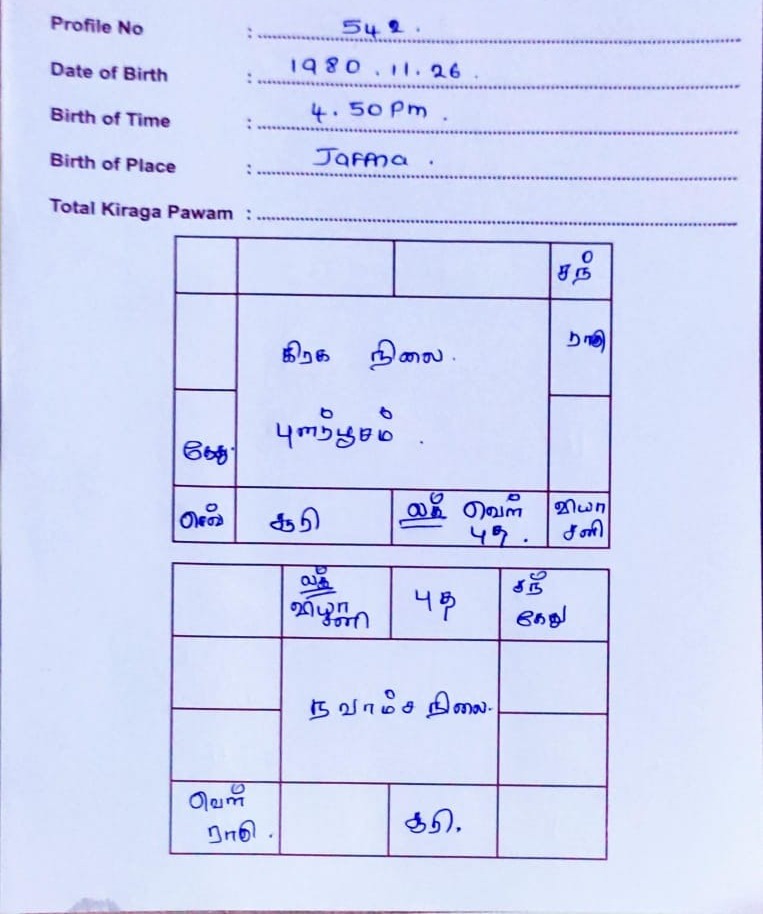 Profile No : 542.
Date of Birth : 1980.11.26.
Birth of Time : 4.50pm.
Birth of Place : Jaffna.
Total Kiraga Pawam :
சந்
கிரக நிலை.
ராகு
புனர்பூசம்.
கேது
செவ் சூரி லக் வெள் வியா
புத. சனி
லக் புத சந்
வியா கேது
சனி
நவாம்ச நிலை.
வெள் சூரி.
ராகு.